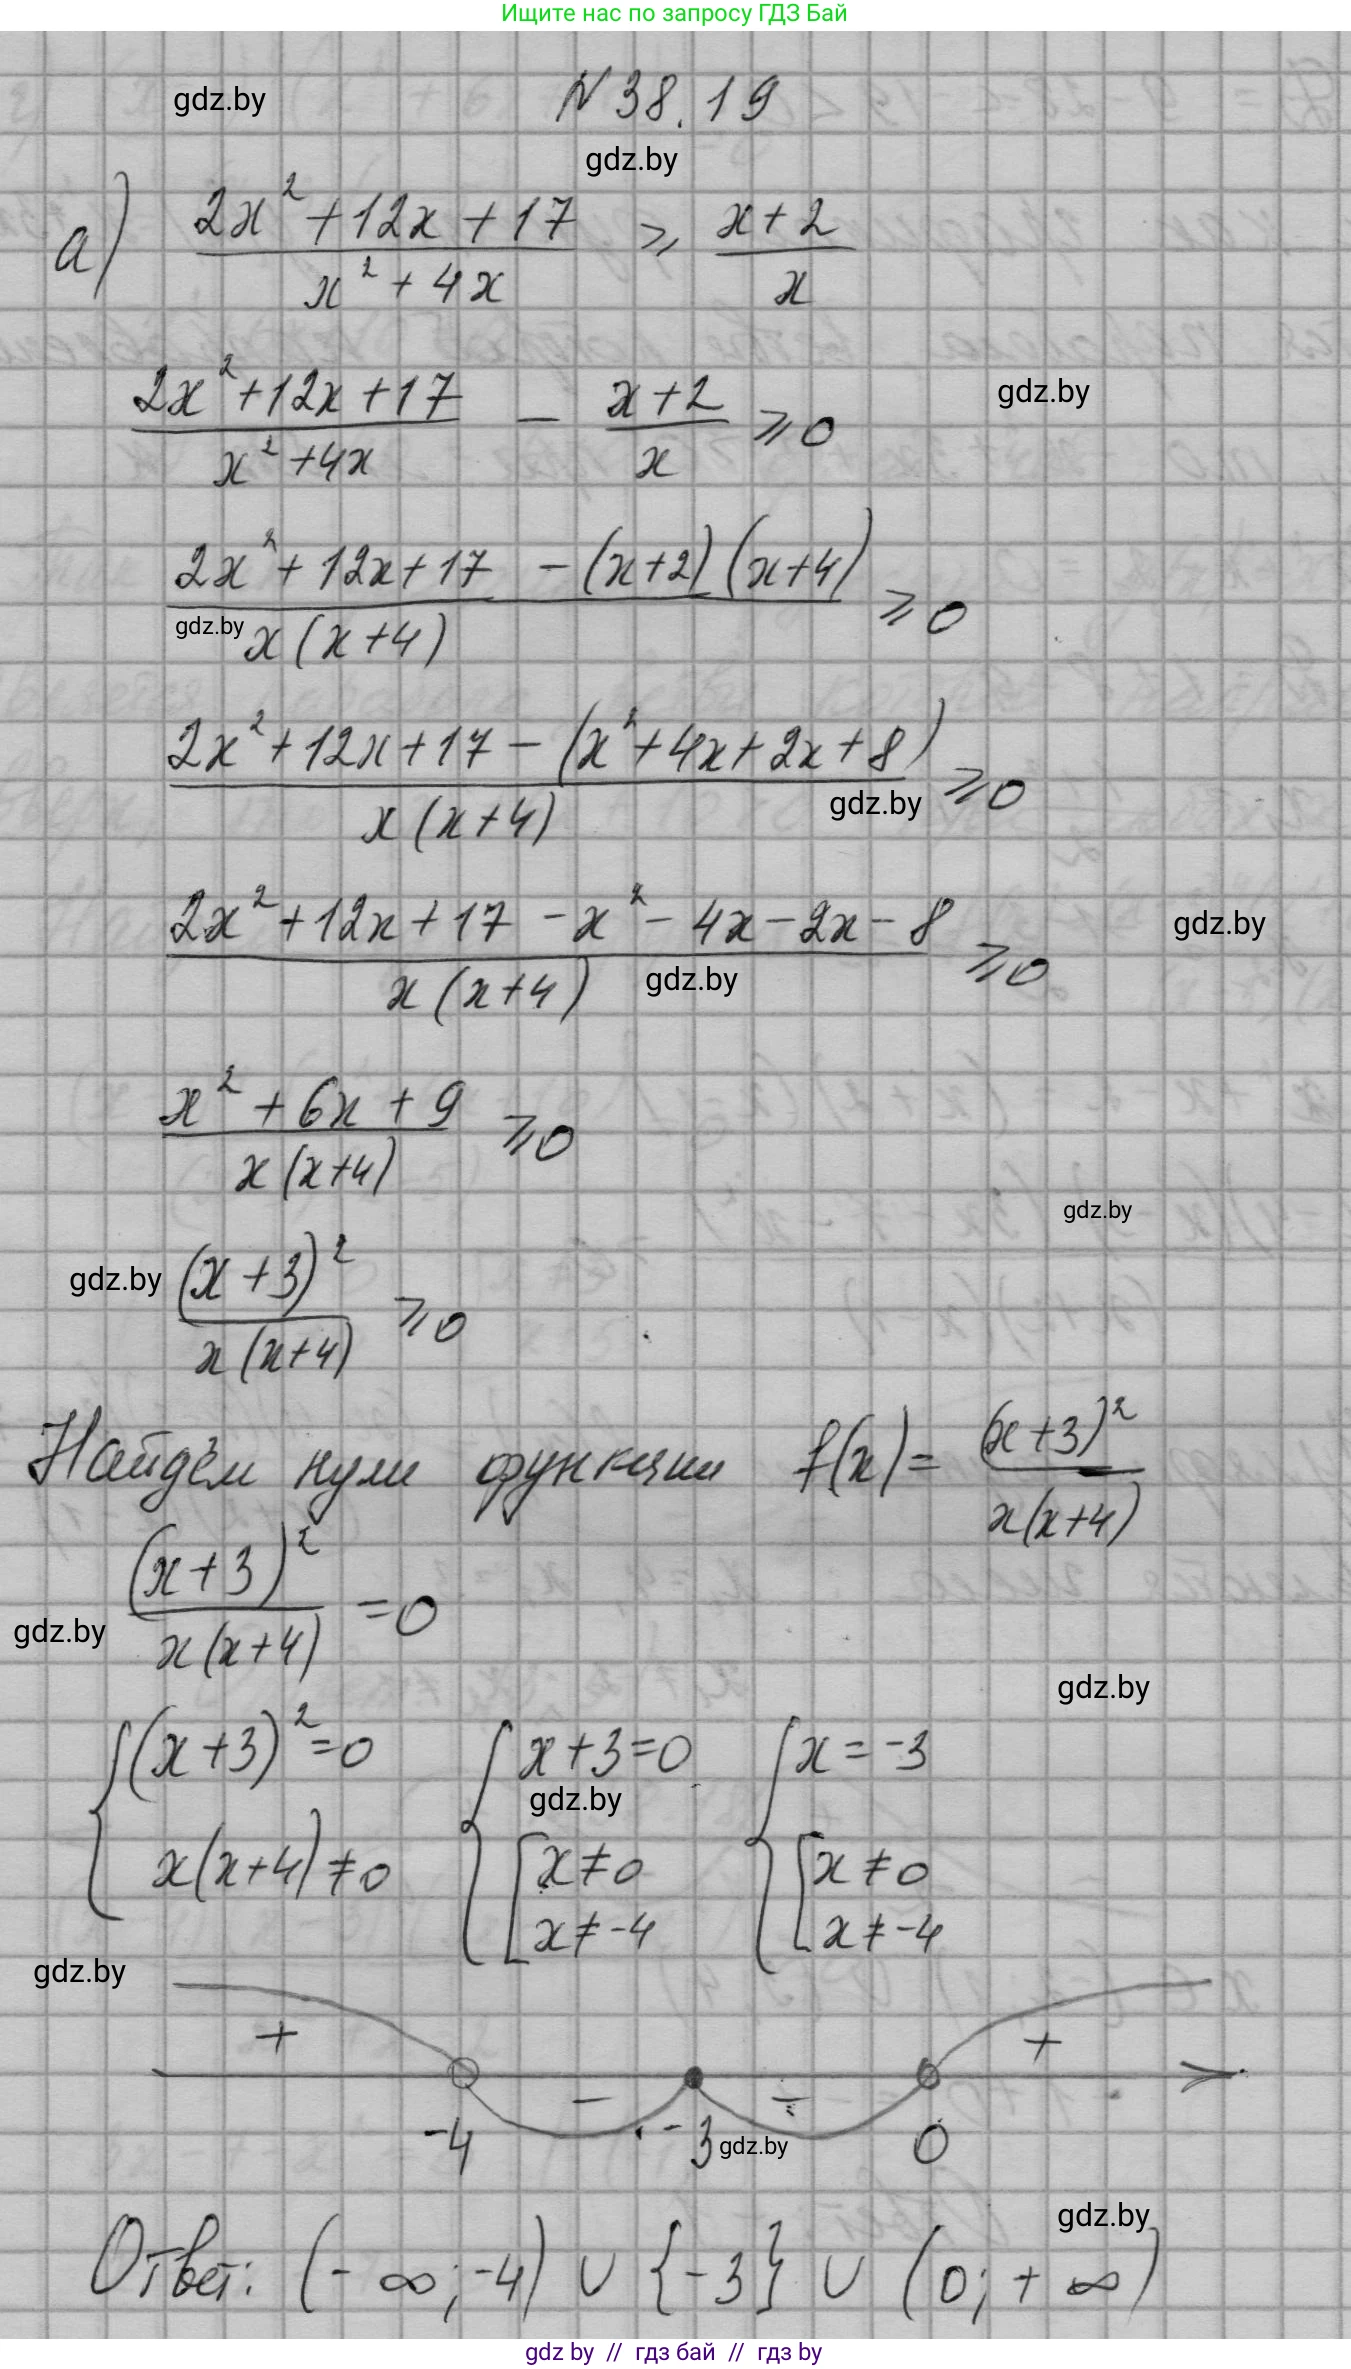 Ищите нас по запросу ГДЗ Бай
gdz.by
N 38.19
gdz.by
а) (2x² + 12x + 17)/(x² + 4x) ⩾ (x + 2)/x
(2x² + 12x + 17)/(x² + 4x) − (x + 2)/x ⩾ 0
gdz.by
(2x² + 12x + 17 − (x+2)(x+4))/(x(x+4)) ⩾ 0
gdz.by
(2x² + 12x + 17 − (x² + 4x + 2x + 8))/(x(x+4)) ⩾ 0
gdz.by
(2x² + 12x + 17 − x² − 4x − 2x − 8)/(x(x+4)) ⩾ 0
gdz.by
gdz.by
(x² + 6x + 9)/(x(x+4)) ⩾ 0
gdz.by
gdz.by
(x + 3)²/(x(x+4)) ⩾ 0
Найдём нули функции f(x) = (x+3)²/(x(x+4))
(x+3)²/(x(x+4)) = 0
gdz.by
gdz.by
{ (x+3)² = 0 { x+3=0 { x = −3
gdz.by
x(x+4) ≠ 0 [ x ≠ 0 [ x ≠ 0
x ≠ −4 x ≠ −4
gdz.by
+ − − +
−4 −3 0
gdz.by
gdz.by
Ответ: (−∞; −4) ∪ {−3} ∪ (0; +∞)
gdz by // гдз бай // гдз by